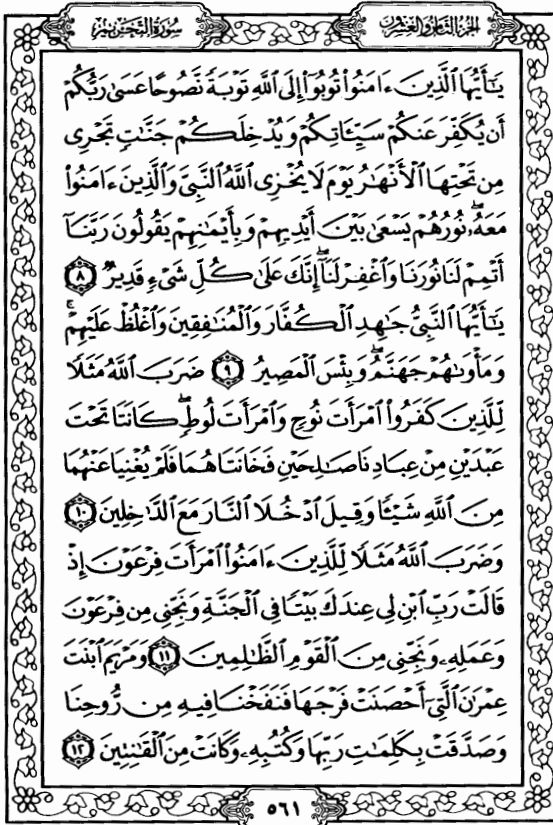 سُورَةُ التَّحْرِيمِ
الجُزْءُ الثَّامِنُ وَالعِشْرُونَ
يَٰٓأَيُّهَا ٱلَّذِينَ ءَامَنُوا۟ تُوبُوٓا۟ إِلَى ٱللَّهِ تَوْبَةً نَّصُوحًا عَسَىٰ رَبُّكُمْ
أَن يُكَفِّرَ عَنكُمْ سَيِّـَٔاتِكُمْ وَيُدْخِلَكُمْ جَنَّٰتٍ تَجْرِى
مِن تَحْتِهَا ٱلْأَنْهَٰرُ يَوْمَ لَا يُخْزِى ٱللَّهُ ٱلنَّبِىَّ وَٱلَّذِينَ ءَامَنُوا۟
مَعَهُۥ ۖ نُورُهُمْ يَسْعَىٰ بَيْنَ أَيْدِيهِمْ وَبِأَيْمَٰنِهِمْ يَقُولُونَ رَبَّنَآ
أَتْمِمْ لَنَا نُورَنَا وَٱغْفِرْ لَنَآ ۖ إِنَّكَ عَلَىٰ كُلِّ شَىْءٍ قَدِيرٌ ٨
يَٰٓأَيُّهَا ٱلنَّبِىُّ جَٰهِدِ ٱلْكُفَّارَ وَٱلْمُنَٰفِقِينَ وَٱغْلُظْ عَلَيْهِمْ ۚ
وَمَأْوَىٰهُمْ جَهَنَّمُ ۖ وَبِئْسَ ٱلْمَصِيرُ ٩ ضَرَبَ ٱللَّهُ مَثَلًا
لِّلَّذِينَ كَفَرُوا۟ ٱمْرَأَتَ نُوحٍ وَٱمْرَأَتَ لُوطٍ ۖ كَانَتَا تَحْتَ
عَبْدَيْنِ مِنْ عِبَادِنَا صَٰلِحَيْنِ فَخَانَتَاهُمَا فَلَمْ يُغْنِيَا عَنْهُمَا
مِنَ ٱللَّهِ شَيْـًٔا وَقِيلَ ٱدْخُلَا ٱلنَّارَ مَعَ ٱلدَّٰخِلِينَ ١٠
وَضَرَبَ ٱللَّهُ مَثَلًا لِّلَّذِينَ ءَامَنُوا۟ ٱمْرَأَتَ فِرْعَوْنَ إِذْ
قَالَتْ رَبِّ ٱبْنِ لِى عِندَكَ بَيْتًا فِى ٱلْجَنَّةِ وَنَجِّنِى مِن فِرْعَوْنَ
وَعَمَلِهِۦ وَنَجِّنِى مِنَ ٱلْقَوْمِ ٱلظَّٰلِمِينَ ١١ وَمَرْيَمَ ٱبْنَتَ
عِمْرَٰنَ ٱلَّتِىٓ أَحْصَنَتْ فَرْجَهَا فَنَفَخْنَا فِيهِ مِن رُّوحِنَا
وَصَدَّقَتْ بِكَلِمَٰتِ رَبِّهَا وَكُتُبِهِۦ وَكَانَتْ مِنَ ٱلْقَٰنِتِينَ ١٢
٥٦١